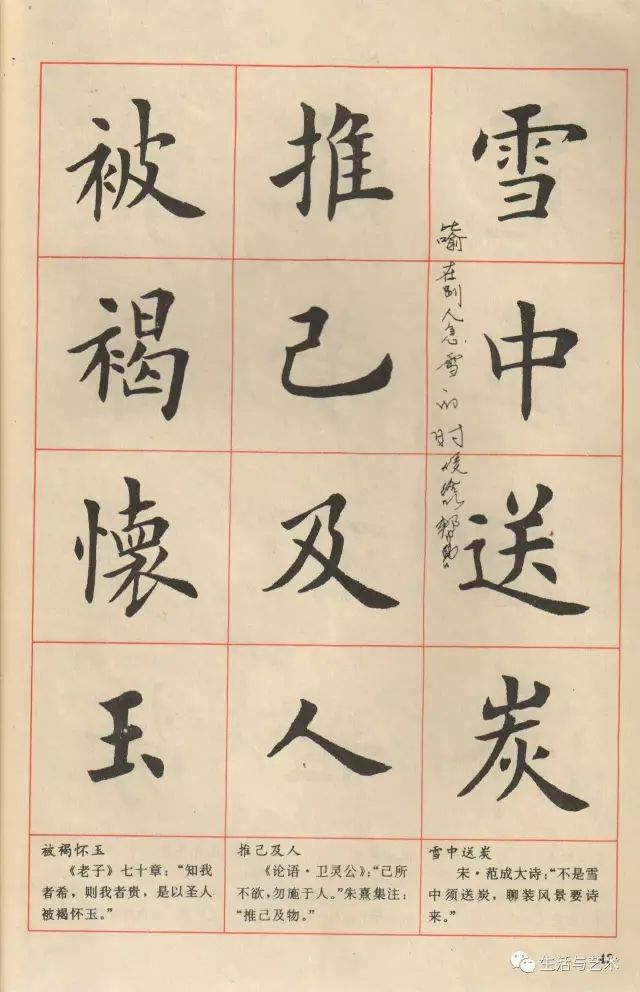 雪中送炭
喻在别人急需的时候给以帮助
推己及人
被褐懷玉
雪中送炭
宋·范成大诗：“不是雪
中须送炭，聊装风景要诗
来。”
推己及人
《论语·卫灵公》：“己所
不欲，勿施于人。”朱熹集注：
“推己及物。”
被褐怀玉
《老子》七十章：“知我
者希，则我者贵，是以圣人
被褐怀玉。”
生活与艺术